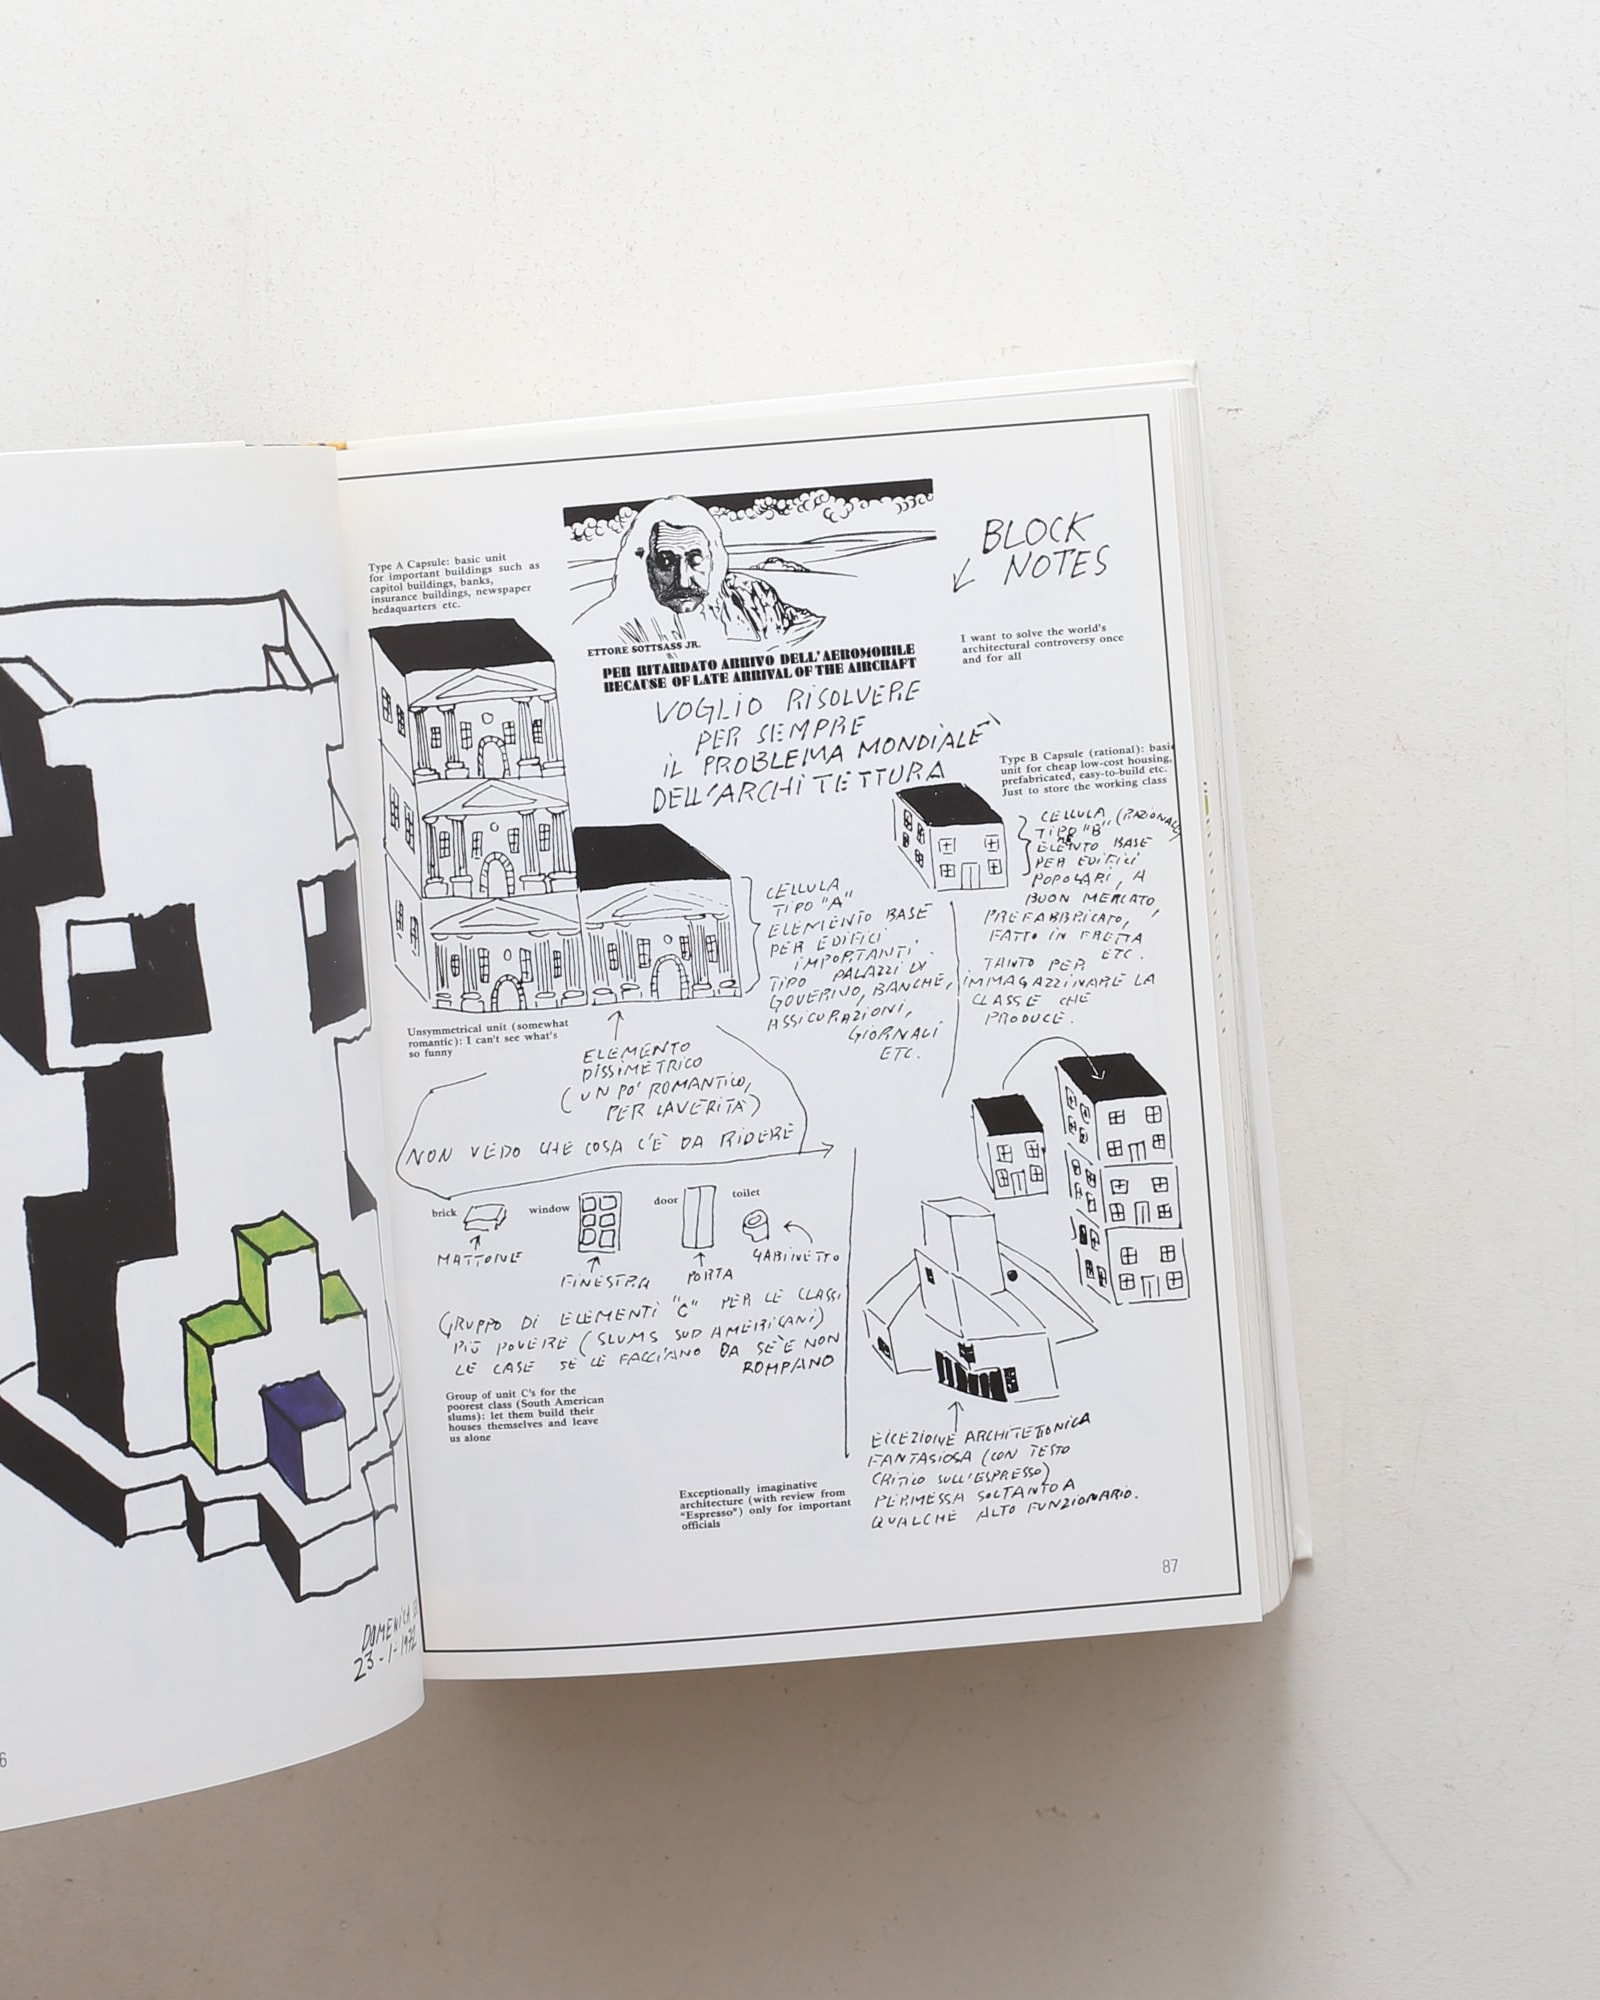 Type A Capsule: basic unit
for important buildings such as
capitol buildings, banks,
insurance buildings, newspaper
hedaquarters etc.
ETTORE SOTTSASS JR.
PER RITARDATO ARRIVO DELL'AEROMOBILE
BECAUSE OF LATE ARRIVAL OF THE AIRCRAFT
BLOCK
NOTES
I want to solve the world's
architectural controversy once
and for all
VOGLIO RISOLVERE
PER SEMPRE
IL PROBLEMA MONDIALE
DELL'ARCHITETTURA
Type B Capsule (rational): basic
unit for cheap low-cost housing,
prefabricated, easy-to-build etc.
Just to store the working class
CELLULA
TIPO "B" (RAZIONALE)
BASE
PER EDIFICI
POPOLARI, A
BUON MERCATO,
PREFABBRICATO,
FATTO IN FRETTA
ETC.
TANTO PER
IMMAGAZZINARE LA
CLASSE CHE
PRODUCE.
CELLULA
TIPO "A"
ELEMENTO BASE
PER EDIFICI
IMPORTANTI,
TIPO PALAZZI DI
GOVERNO, BANCHE,
ASSICURAZIONI,
GIORNALI
ETC.
Unsymmetrical unit (somewhat
romantic): I can't see what's
so funny
ELEMENTO
DISSIMETRICO
(UN PO' ROMANTICO,
PER LA VERITÀ)
NON VEDO CHE COSA C'È DA RIDERE
brick
window
door
toilet
MATTONE
FINESTRA
PORTA
GABINETTO
GRUPPO DI ELEMENTI "C" PER LE CLASSI
PIÙ POVERE (SLUMS SUD AMERICANI)
LE CASE SE LE FACCIANO DA SÈ E NON
ROMPANO
Group of unit C's for the
poorest class (South American
slums): let them build their
houses themselves and leave
us alone
Exceptionally imaginative
architecture (with review from
"Espresso") only for important
officials
ECCEZIONE ARCHITETTONICA
FANTASIOSA (CON TESTO
CRITICO SULL'ESPRESSO)
PERMESSA SOLTANTO A
QUALCHE ALTO FUNZIONARIO.
87
DOMENICA
23-1-1972
6